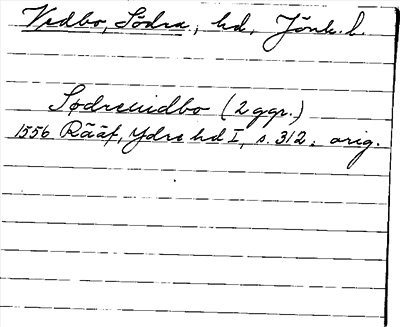 Vedbo, Södra, hd, Jönk. l.
Sødreuidbo (2 ggr.)
1556 Rääf, Ydre hd I, s. 312, orig.